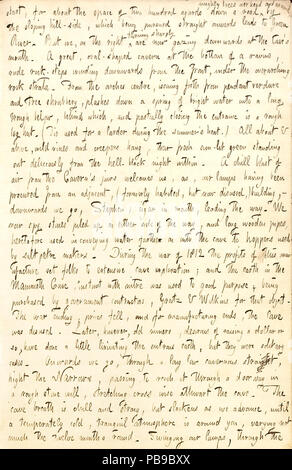 start, for about the space of two hundred yards down a
the sloping hill-side, which being pursued straight onwards leads to Green
River. But we, on the right, turning sharply, are now gazing downwards at the Cave's
mouth. A great, oval-shaped cavern at the bottom of a ravine,
rude rock steps winding downwards from the front, under the overarching
rock strata. From the arches centre issuing forth from pendant verdure
and tree shrubbery, plashes down a spring of bright water into a long
rough hollow, behind which, and partially closing the entrance is a rough
log hut. (Tis used for a larder during the summer's heat.) All about &
above, wild vines and creepers hang, their fresh sun-lit green standing
out deliciously from the hell-black night within. A chill blast of
air from the Cavern's jaws welcomes us, as, our lamps having been
procured from an adjacent, (formerly habited, but now disused,) building,
downwards we go, Stephen, cigar in mouth, leading the way. We
now spy stones piled up on either side of the way and long wooden pipes,
heretofore used in conveying water further on into the cave to hoppers used
by salt petre makers. During the war of 1812 the profits of this manu-
facture set folks to extensive cave exploration; and the earth in the
Mammoth Cave, instinct with nitre was used to good purpose, being
purchased by government contractors, Gratz & Wilkins for that object.
The war ending, prices fell, and for manufacturing ends, the cave
was disused. Later, however, old miners, desirous of raising a dollar or
so, have done a little lixiviating the nitrous earth, but they were solitary
cases. Onwards we go, through a long low cavernous straight
hight the Narrows, passing to reach it through a doorway in
a rough stone wall, stretching cross wise athwart the cave. To the
cave breath is chill and strong, but slackens as we advance, until
a temperately cold, tranquil atmosphere is around you varying not
much the twelve months round. Swinging our lamps, through the